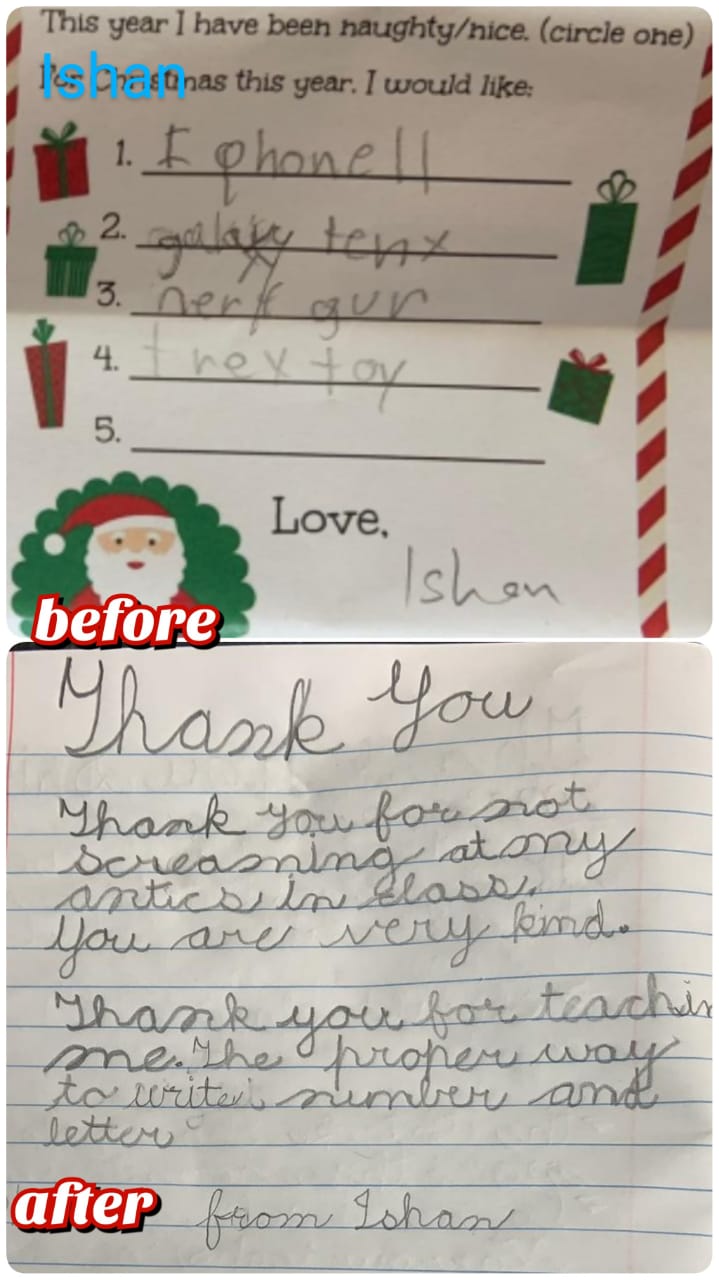 This year I have been naughty/nice. (circle one)
Ishan
For Christmas this year, I would like:
1. I phone 11
2. galaxy tenx
3. nerf gun
4. trex toy
5.
Love,
Ishan
before
Thank You
Thank you for not
screaming at my
antics in class.
You are very kind.
Thank you for teachin
me. The proper way
to write number and
letter
after
from Ishan